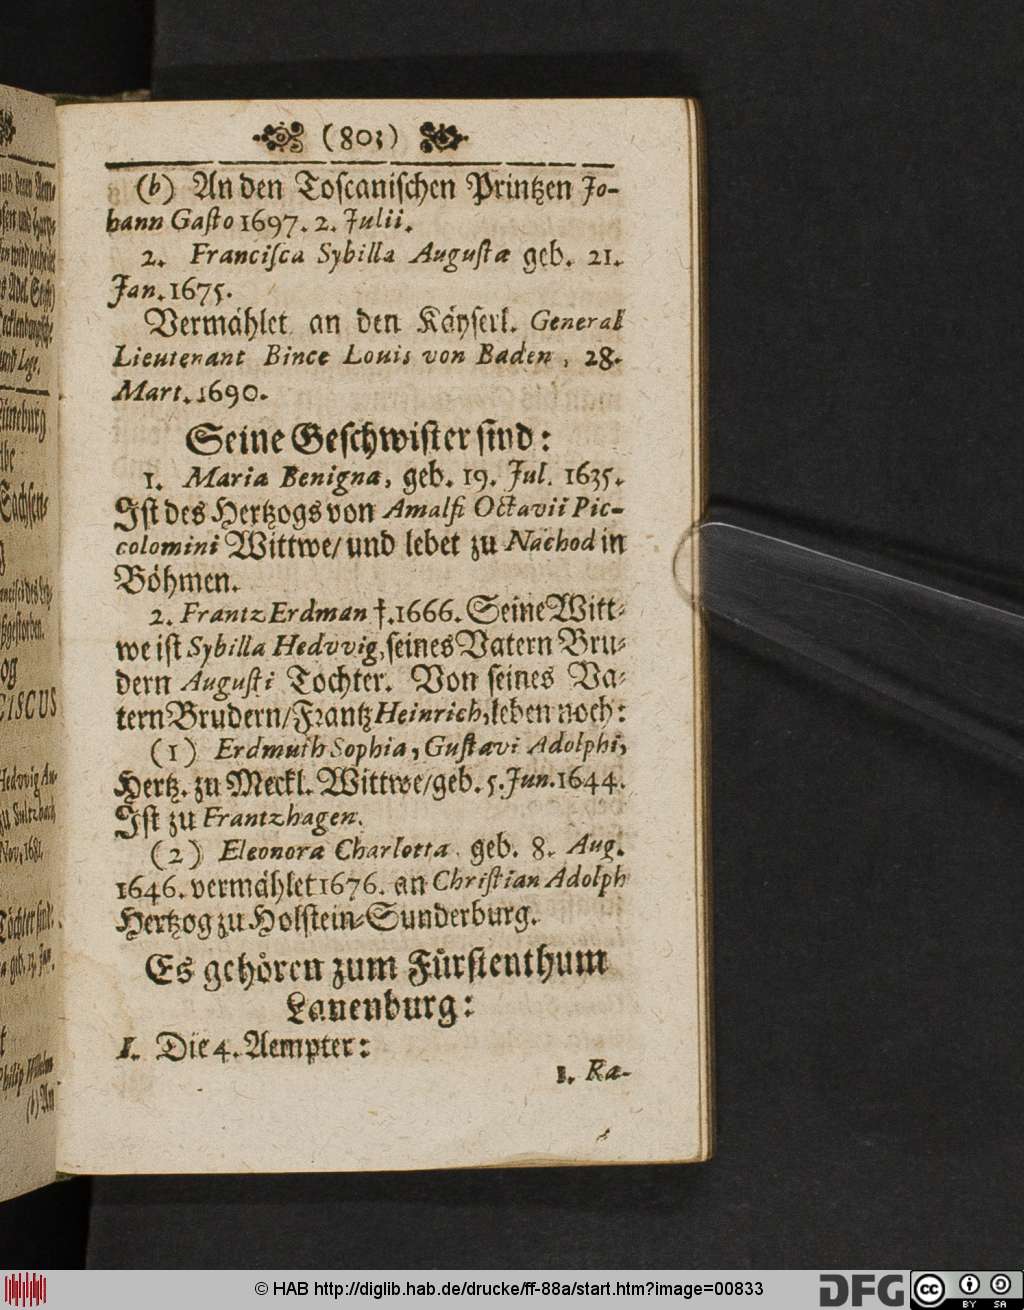 (803)
(b) An den Toscanischen Printzen Jo-
hann Gasto 1697. 2. Julii.
2. Francisca Sybilla Augusta geb. 21.
Jan. 1675.
Vermählet an den Käyserl. General
Lieutenant Bince Louis von Baden, 28.
Mart. 1690.
Seine Geschwister sind:
1. Maria Benigna, geb. 19. Jul. 1635.
Ist des Hertzogs von Amalfi Octavii Pic-
colomini Wittwe/ und lebet zu Nachod in
Böhmen.
2. Frantz Erdman †. 1666. Seine Witt-
we ist Sybilla Hedvvig, seines Vatern Bru-
dern Augusti Tochter. Von seines Va-
tern Brudern/ Frantz Heinrich, leben noch:
(1) Erdmuth Sophia, Gustavi Adolphi,
Hertz. zu Meckl. Wittwe/ geb. 5. Jun. 1644.
Ist zu Frantzhagen.
(2) Eleonora Charlotta. geb. 8. Aug.
1646. vermählet 1676. an Christian Adolph
Hertzog zu Holstein-Sunderburg.
Es gehören zum Fürstenthum
Lauenburg:
I. Die 4. Aempter:
1. Ra-
© HAB http://diglib.hab.de/drucke/ff-88a/start.htm?image=00833
DFG
cc
BY SA